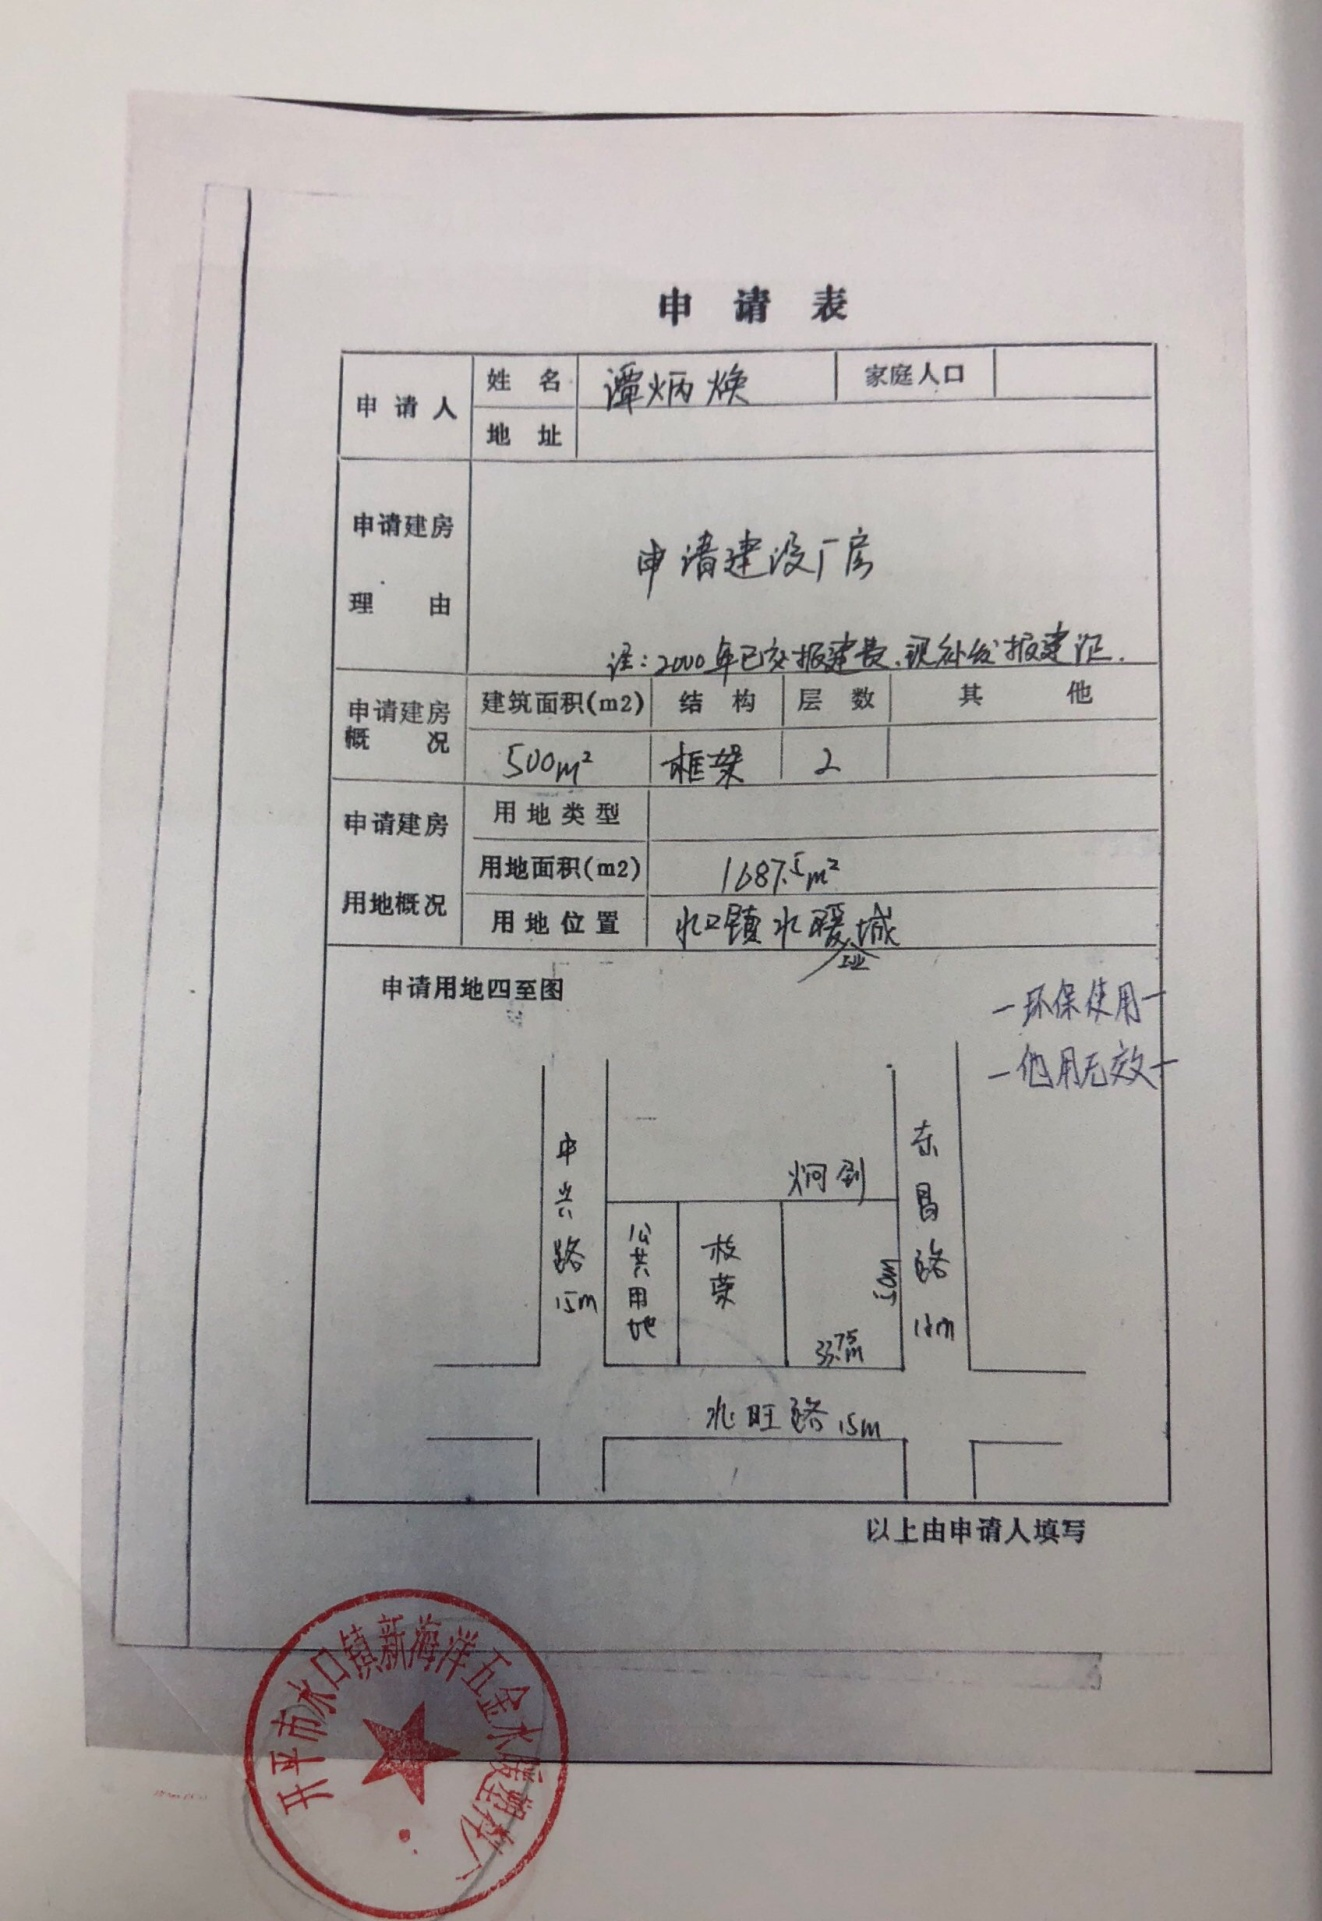 申请表
申请人 姓名 谭炳焕 家庭人口
地址
申请建房
理由
申请建设厂房
注：2000年已交报建费，现补发报建证.
申请建房概况 建筑面积(m2) 结构 层数 其他
500m² 框架 2
申请建房
用地概况
用地类型
用地面积(m2) 1687.5m²
用地位置 水口镇水暖城
工业
申请用地四至图
-环保使用-
-他用无效-
中兴路15m
公共用地
枝荣
炯创
50m
33.75m
东昌路
水旺路15m
以上由申请人填写
开平市水口镇新海洋五金水暖塑料厂